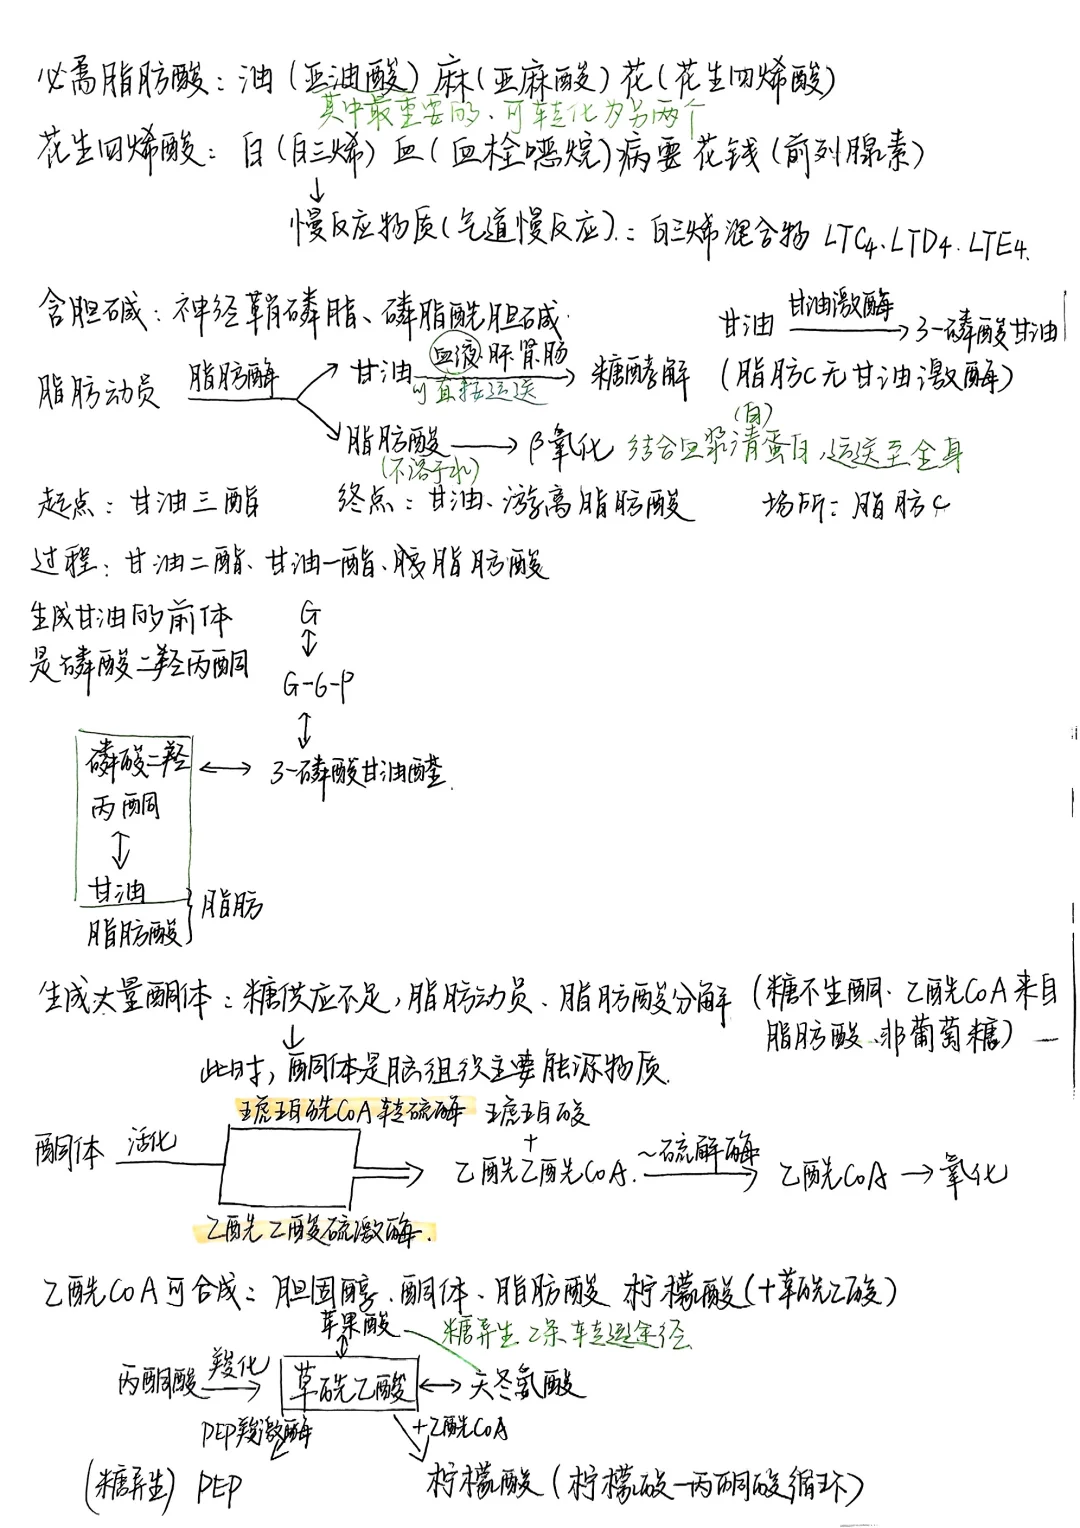 必需脂肪酸：油（亚油酸）麻（亚麻酸）花（花生四烯酸）
其中最重要的、可转化为另两个
花生四烯酸：白（白三烯）血（血栓噁烷）病要花钱（前列腺素）
↓
慢反应物质（气道慢反应）：白三烯混合物 LTC4、LTD4、LTE4
含胆碱：神经鞘磷脂、磷脂酰胆碱
甘油 甘油激酶→ 3-磷酸甘油
（脂肪C无甘油激酶）
脂肪动员 脂肪酶
甘油 血液·肝肾肠→ 糖酵解
可直接运送
脂肪酸 → β氧化 结合血浆清蛋白，运送至全身
（白）
（不溶于水）
起点：甘油三酯 终点：甘油、游离脂肪酸 场所：脂肪C
过程：甘油二酯、甘油一酯、脂肪酸
生成甘油的前体
是磷酸二羟丙酮
G
↕
G-6-P
↕
磷酸二羟 ↔ 3-磷酸甘油醛
丙酮
↕
甘油
脂肪酸 } 脂肪
生成大量酮体：糖供应不足，脂肪动员、脂肪酸分解（糖不生酮、乙酰CoA来自
脂肪酸、非葡萄糖）
↓
此时，酮体是脑组织主要能源物质
琥珀酰CoA转硫酶 琥珀酸
+
酮体 活化 ⇒ 乙酰乙酰CoA ~硫解酶→ 乙酰CoA → 氧化
乙酰乙酸硫激酶
乙酰CoA可合成：胆固醇、酮体、脂肪酸 柠檬酸（+草酰乙酸）
苹果酸 糖异生2条转运途径
↕
丙酮酸 羧化→ 草酰乙酸 ↔ 天冬氨酸
PEP羧激酶 +乙酰CoA
（糖异生）PEP 柠檬酸（柠檬酸-丙酮酸循环）